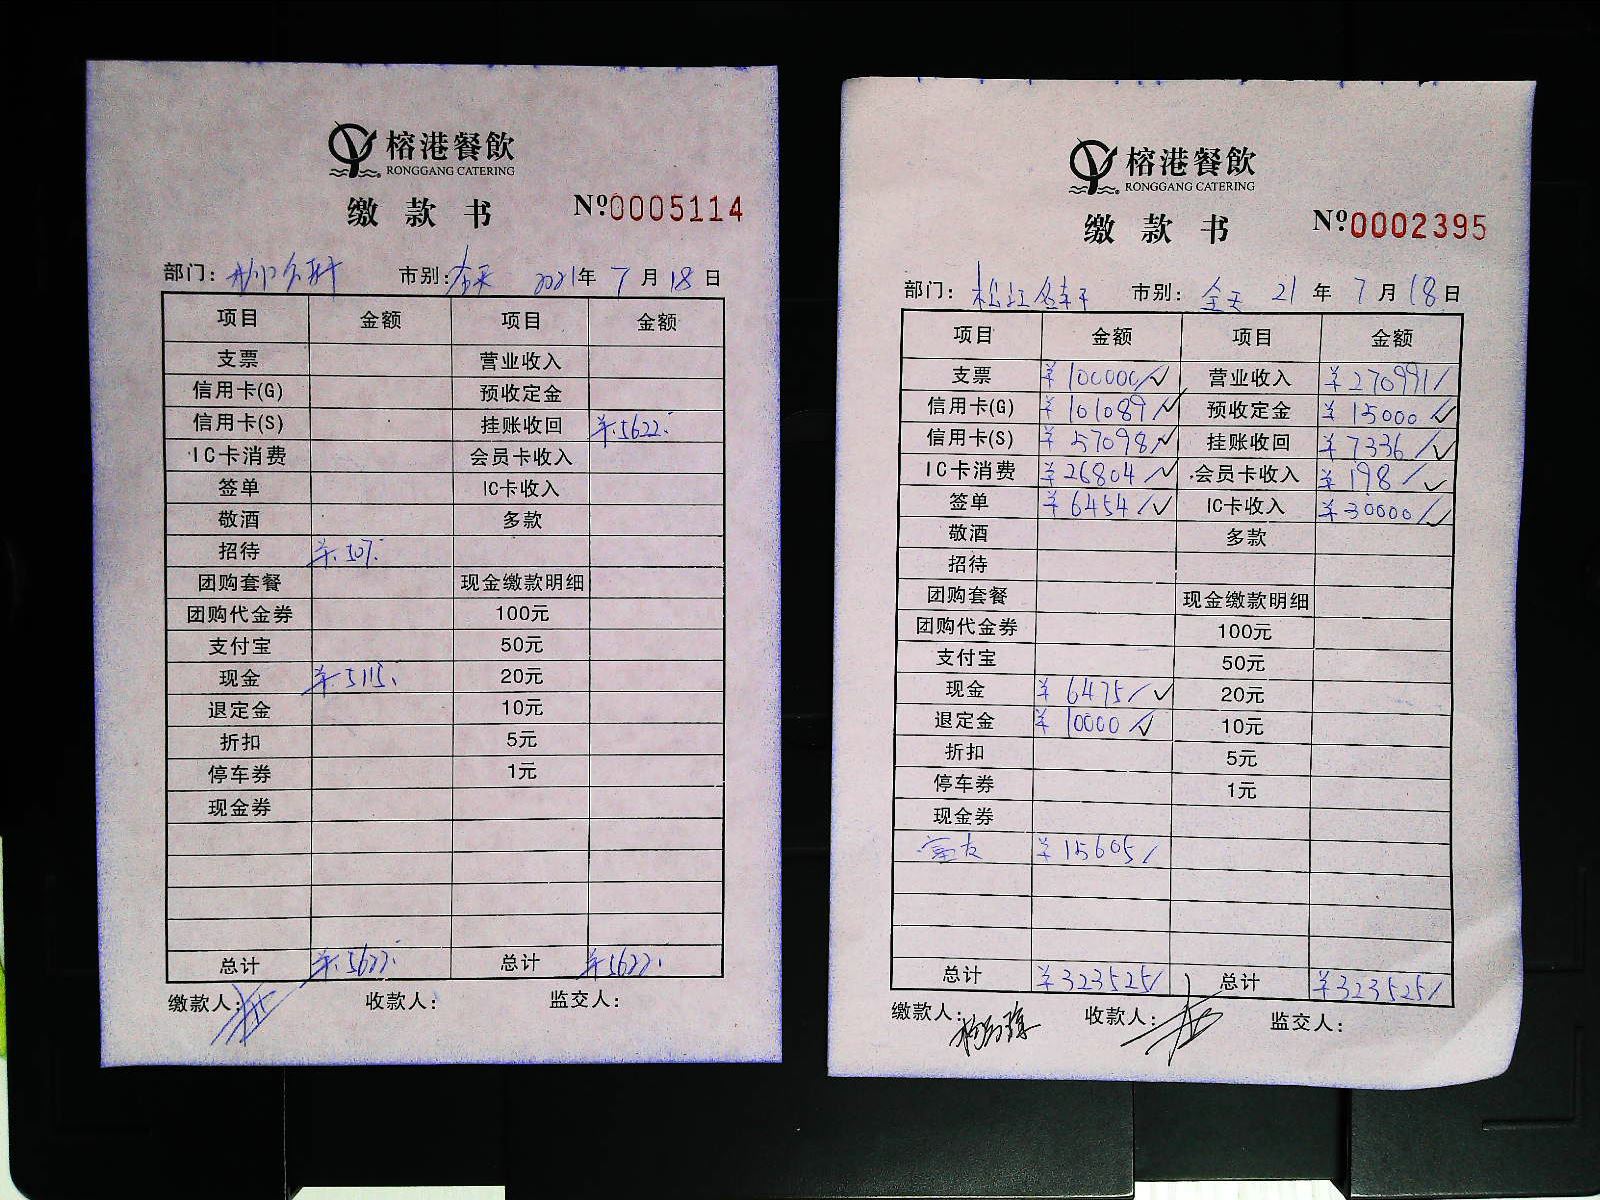 榕港餐飲
RONGGANG CATERING
缴款书 Nº0005114
部门: 市别:全天 2021年7月18日
项目 金额 项目 金额
支票 营业收入
信用卡(G) 预收定金
信用卡(S) 挂账收回 ¥5622
IC卡消费 会员卡收入
签单 IC卡收入
敬酒 多款
招待 ¥507
团购套餐 现金缴款明细
团购代金券 100元
支付宝 50元
现金 ¥5115 20元
退定金 10元
折扣 5元
停车券 1元
现金券
总计 ¥5622 总计 ¥5622
缴款人: 收款人: 监交人:
榕港餐飲
RONGGANG CATERING
缴款书 Nº0002395
部门:松江名轩 市别:全天 21年7月18日
项目 金额 项目 金额
支票 ¥100000/✓ 营业收入 ¥270991/
信用卡(G) ¥101089/✓ 预收定金 ¥15000/✓
信用卡(S) ¥57098/✓ 挂账收回 ¥7336/✓
IC卡消费 ¥26804/✓ 会员卡收入 ¥198/✓
签单 ¥6454/✓ IC卡收入 ¥30000/✓
敬酒 多款
招待
团购套餐 现金缴款明细
团购代金券 100元
支付宝 50元
现金 ¥6475/✓ 20元
退定金 ¥10000/✓ 10元
折扣 5元
停车券 1元
现金券
富友 ¥15605/
总计 ¥323525/ 总计 ¥323525/
缴款人: 收款人: 监交人: